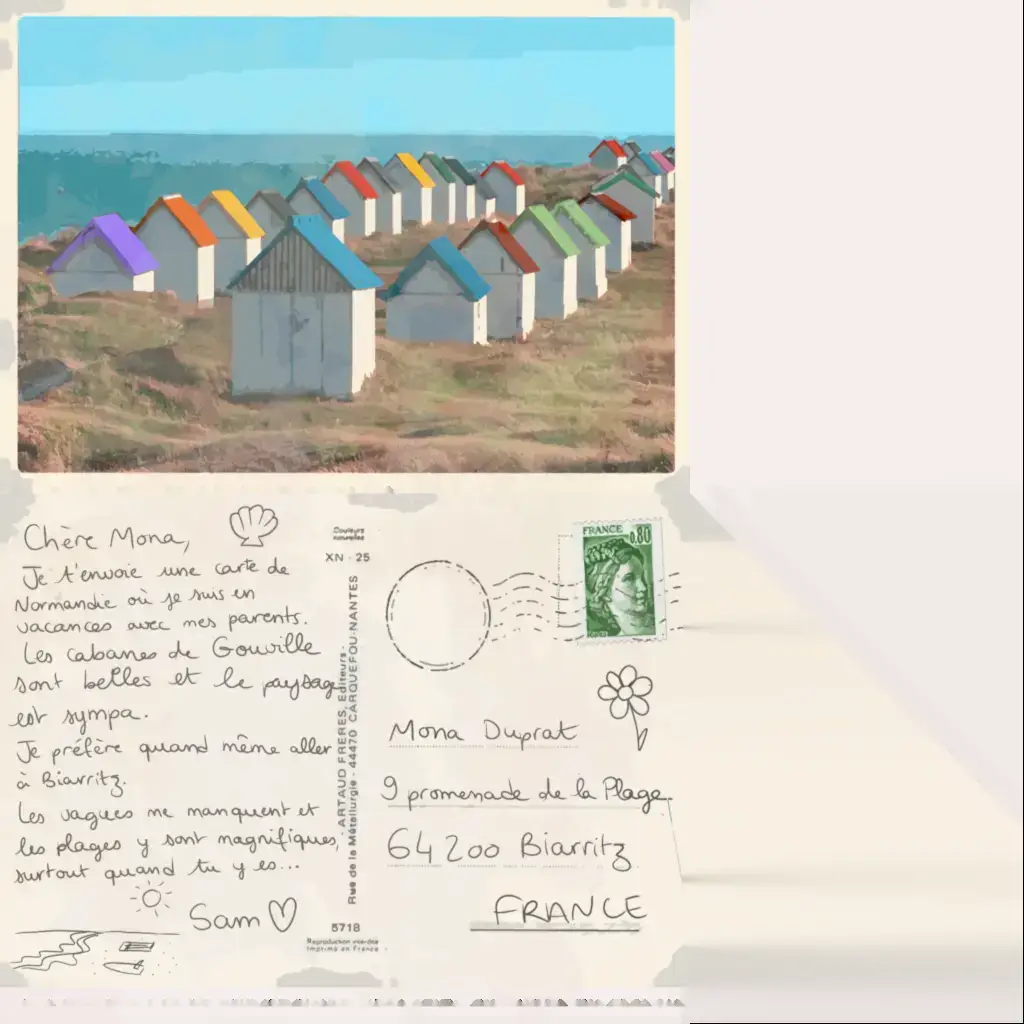 Chère Mona,
Je t'envoie une carte de
Normandie où je suis en
vacances avec mes parents.
Les cabanes de Gouville
sont belles et le paysage
est sympa.
Je préfère quand même aller
à Biarritz.
Les vagues me manquent et
les plages y sont magnifiques,
surtout quand tu y es...
Sam
Couleurs
naturelles
XN - 25
- ARTAUD FRERES, Editeurs -
Rue de la Métallurgie - 44470 CARQUEFOU-NANTES
5718
Reproduction interdite
Imprimé en France
FRANCE
0,80
Mona Duprat
9 promenade de la Plage
64200 Biarritz
FRANCE